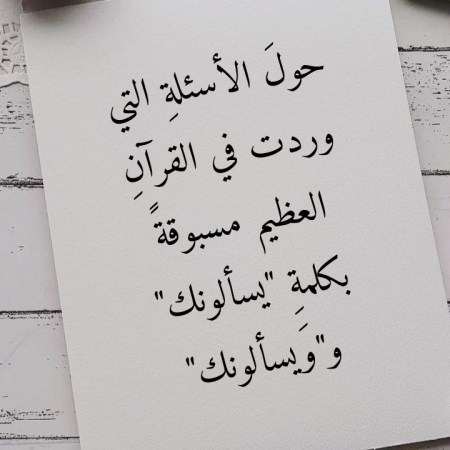 حولَ الأسئلةِ التي
وردت في القرآنِ
العظيم مسبوقةً
بكلمةِ "يسألونك"
و"وَيسألونك"